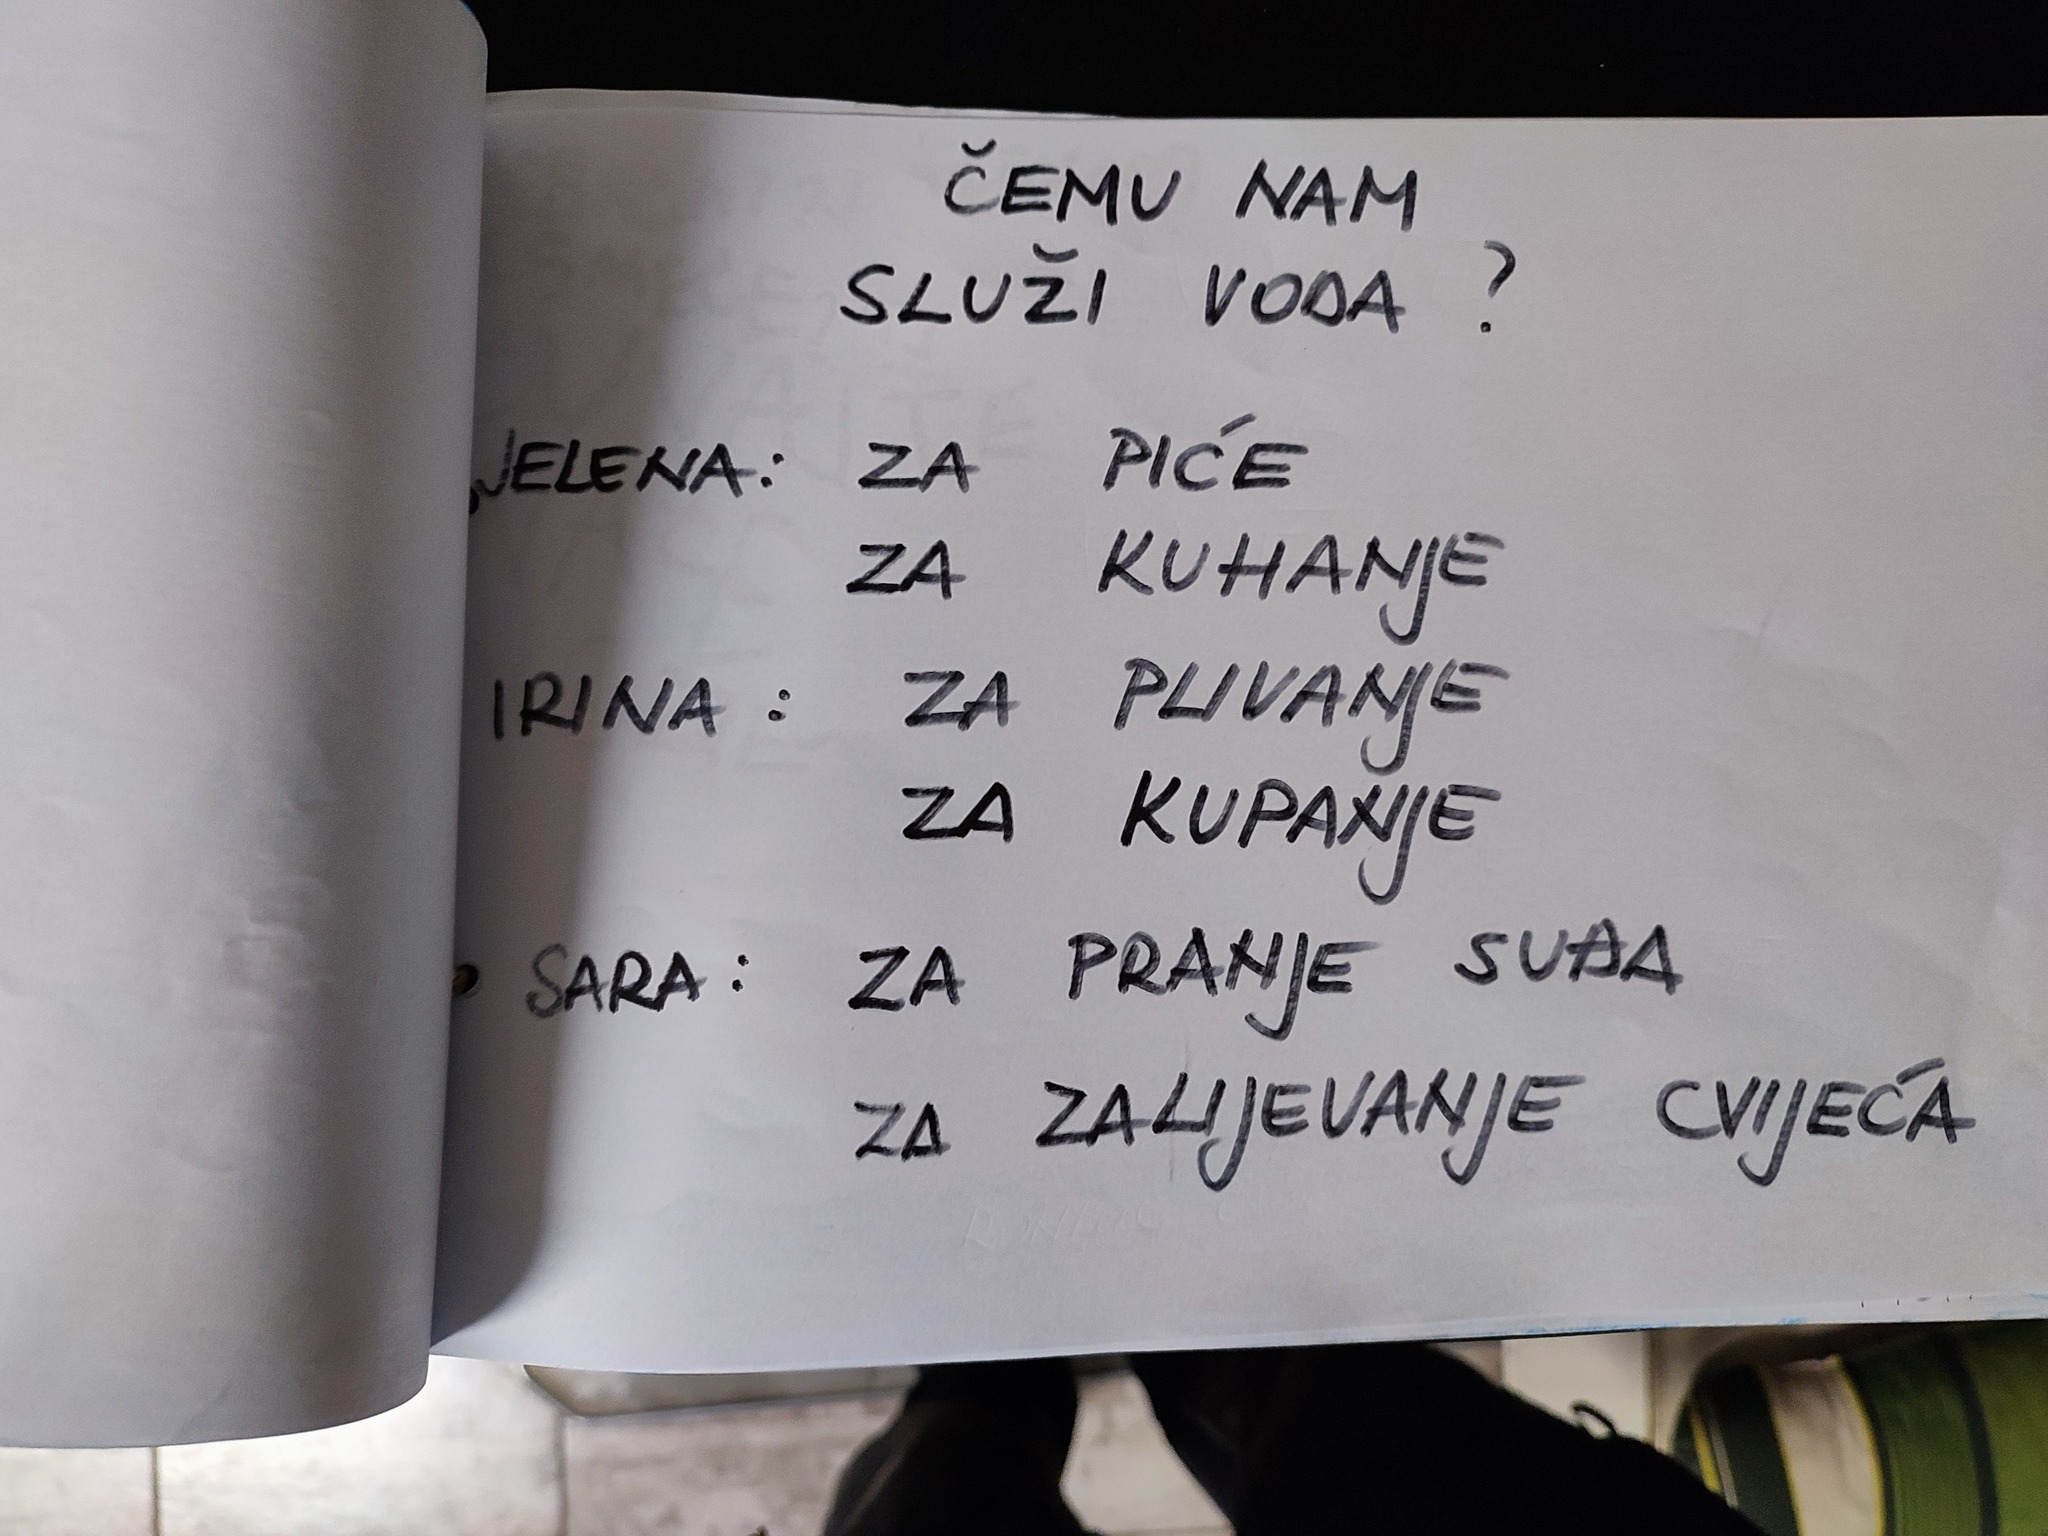 ČEMU NAM
SLUŽI VODA ?
JELENA: ZA PIĆE
ZA KUHANJE
IRINA : ZA PLIVANJE
ZA KUPANJE
SARA : ZA PRANJE SUĐA
ZA ZALIJEVANJE CVIJEĆA